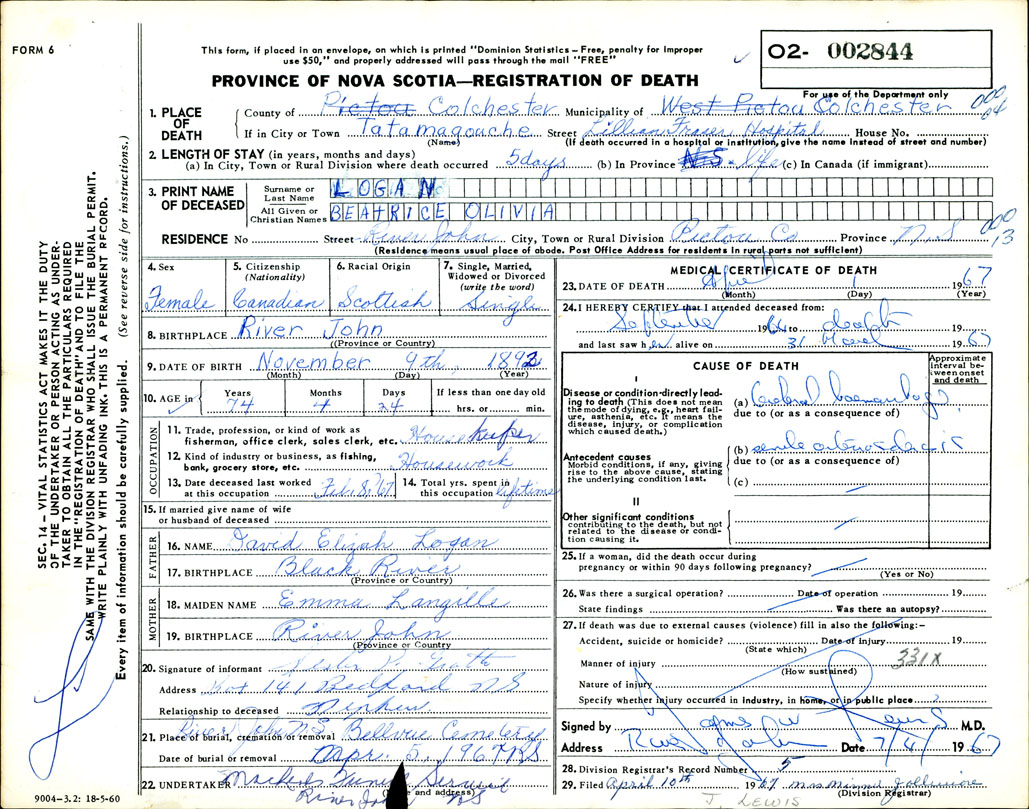 FORM 6
This form, if placed in an envelope, on which is printed "Dominion Statistics – Free, penalty for improper
use $50," and properly addressed will pass through the mail "FREE"
O2- 002844
For use of the Department only
PROVINCE OF NOVA SCOTIA—REGISTRATION OF DEATH
SEC. 14 – VITAL STATISTICS ACT MAKES IT THE DUTY
OF THE UNDERTAKER OR PERSON ACTING AS UNDER-
TAKER TO OBTAIN ALL THE PARTICULARS REQUIRED
IN THE "REGISTRATION OF DEATH" AND TO FILE THE
SAME WITH THE DIVISION REGISTRAR WHO SHALL ISSUE THE BURIAL PERMIT.
WRITE PLAINLY WITH UNFADING INK. THIS IS A PERMANENT RECORD.
Every item of information should be carefully supplied. (See reverse side for instructions.)
1. PLACE OF DEATH
County of Pictou Colchester Municipality of West Pictou Colchester
If in City or Town Tatamagouche Street Lillian Fraser Hospital House No.
(Name) (If death occurred in a hospital or institution, give the name instead of street and number)
2. LENGTH OF STAY (in years, months and days)
(a) In City, Town or Rural Division where death occurred 5 days (b) In Province N.S. life (c) In Canada (if immigrant)
3. PRINT NAME OF DECEASED
Surname or Last Name LOGAN
All Given or Christian Names BEATRICE OLIVIA
RESIDENCE No Street River John City, Town or Rural Division Pictou Co Province N.S 13
(Residence means usual place of abode. Post Office Address for residents in rural parts not sufficient)
4. Sex Female
5. Citizenship (Nationality) Canadian
6. Racial Origin Scottish
7. Single, Married, Widowed or Divorced (write the word) Single
8. BIRTHPLACE River John
(Province or Country)
9. DATE OF BIRTH November 9th, 1892
(Month) (Day) (Year)
10. AGE in Years 74 Months 4 Days 24 If less than one day old hrs. or min.
OCCUPATION
11. Trade, profession, or kind of work as
fisherman, office clerk, sales clerk, etc. Housekeeper
12. Kind of industry or business, as fishing,
bank, grocery store, etc. Housework
13. Date deceased last worked at this occupation Feb. 8, 67
14. Total yrs. spent in this occupation lifetime
15. If married give name of wife
or husband of deceased
FATHER
16. NAME David Elizah Logan
17. BIRTHPLACE Black River
(Province or Country)
MOTHER
18. MAIDEN NAME Emma Langille
19. BIRTHPLACE River John
(Province or Country)
20. Signature of informant
Address Box 141 Bedford NS
Relationship to deceased Nephew
21. Place of burial, cremation or removal River John N.S. Bellvue Cemetery
Date of burial or removal Apr. 5, 1967 NS
22. UNDERTAKER Service
River John NS
(Name and address)
9004-3.2: 18-5-60
MEDICAL CERTIFICATE OF DEATH
23. DATE OF DEATH April 1 1967
(Month) (Day) (Year)
24. I HEREBY CERTIFY that I attended deceased from:
September 1964 to death 19
and last saw her alive on 31 March 1967
CAUSE OF DEATH
Approximate Interval between onset and death
I
Disease or condition directly lead-
ing to death (This does not mean
the mode of dying, e.g., heart fail-
ure, asthenia, etc. It means the
disease, injury, or complication
which caused death.)
(a) Cerebral haemorrhage
due to (or as a consequence of)
Antecedent causes
Morbid conditions, if any, giving
rise to the above cause, stating
the underlying condition last.
(b) senile arteriosclerosis
due to (or as a consequence of)
(c)
II
Other significant conditions
contributing to the death, but not
related to the disease or condi-
tion causing it.
25. If a woman, did the death occur during
pregnancy or within 90 days following pregnancy?
(Yes or No)
26. Was there a surgical operation? Date of operation 19
State findings Was there an autopsy?
27. If death was due to external causes (violence) fill in also the following:–
Accident, suicide or homicide? Date of injury 19
(State which)
Manner of injury 331X
(How sustained)
Nature of injury
Specify whether injury occurred in industry, in home, or in public place ?
Signed by James W M.D.
Address River John Date 7/4/ 1967
28. Division Registrar's Record Number 5
29. Filed April 10th 1967 Mrs Minnie
(Division Registrar)
J. LEWIS